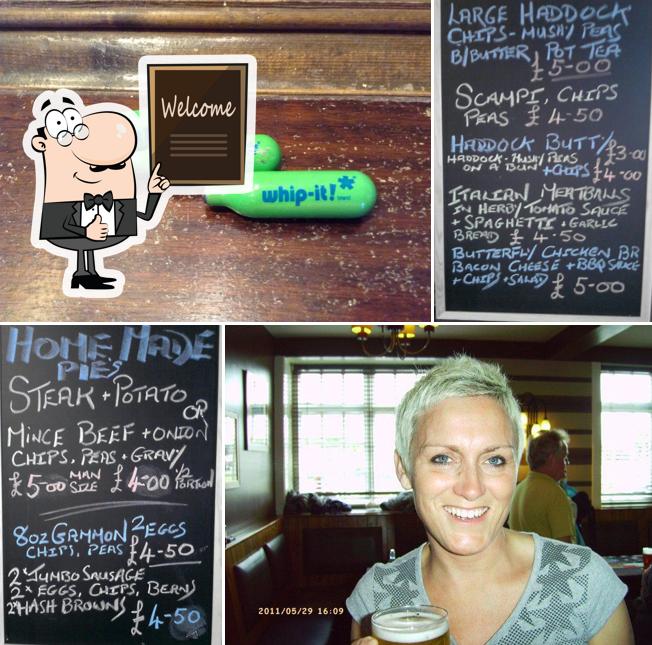 Welcome
whip-it!
LARGE HADDOCK
CHIPS - MUSHY PEAS
B/BUTTER, POT TEA
£5-00
SCAMPI, CHIPS
PEAS £4-50
HADDOCK BUTTY £3-00
HADDOCK - MUSHY PEAS
ON A BUN + CHIPS £4-00
ITALIAN MEATBALLS
IN HERBY TOMATO SAUCE
+ SPAGHETTI + GARLIC
BREAD £4-50
BUTTERFLY CHICKEN BR
BACON CHEESE + BBQ SAUCE
+ CHIPS + SALAD
£5-00
HOME MADE
PIES
STEAK + POTATO
OR
MINCE BEEF + ONION
CHIPS, PEAS + GRAVY
£5-00 MAN SIZE £4-00 1/2 PORTION
8oz GAMMON 2 EGGS
CHIPS, PEAS £4-50
2 JUMBO SAUSAGE
2x EGGS, CHIPS, BEANS
2 HASH BROWNS £4-50
2011/05/29 16:09